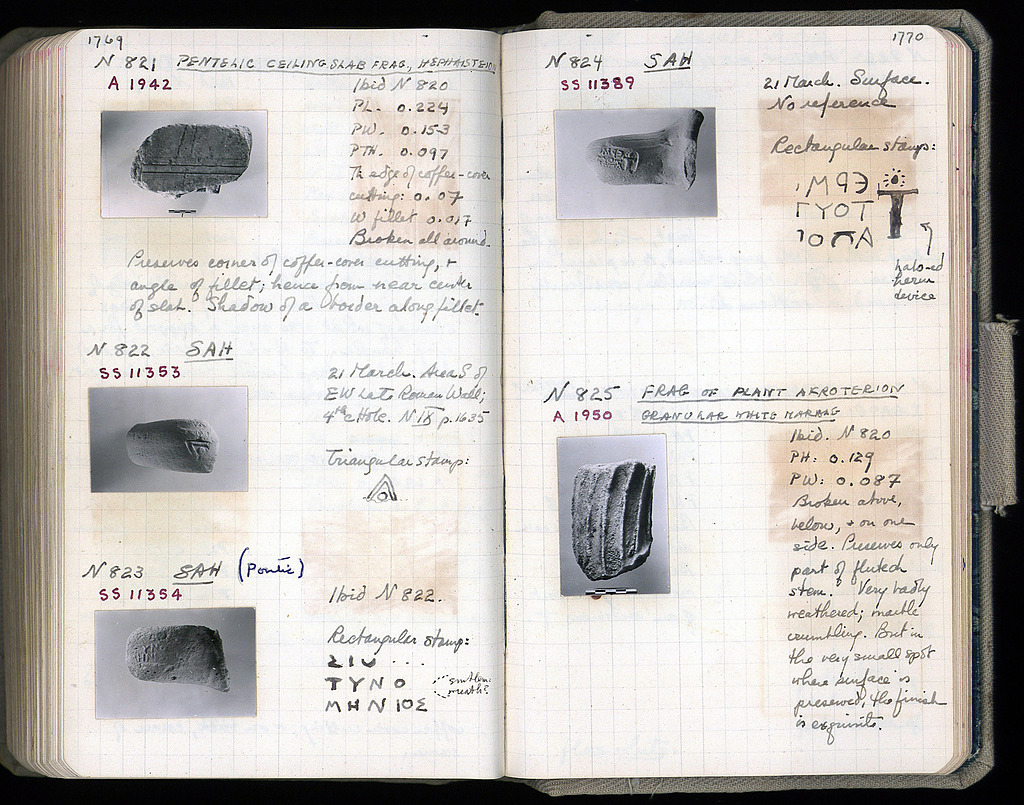 1769
N 821 PENTELIC CEILING SLAB FRAG, HEPHAISTEION
A 1942
Ibid N 820
PL. 0.224
PW. 0.153
PTH. 0.097
Th edge of coffer-cover
cutting: 0.07
W fillet 0.017
Broken all around.
Preserves corner of coffer-cover cutting, +
angle of fillet; hence from near center
of slab. Shadow of a border along fillet.
N 822 SAH
SS 11353
21 March. Area S of
EW Late Roman Wall;
4th c Hole. N IX p. 1635
Triangular stamp:
N 823 SAH (Pontic)
SS 11354
Ibid N 822.
Rectangular stamp:
ΣΙU ...
ΤΥΝΟ
ΜΗΝΙΟΣ
emblem:
wreath?
1770
N 824 SAH
SS 11389
21 March. Surface.
No reference
Rectangular stamp:
ΙΜΡЭ
ΓΥΟΤ
ΙΟΠΑ
halo-ed
herm
device
N 825 FRAG OF PLANT AKROTERION
A 1950 GRANULAR WHITE MARBLE
Ibid. N 820
PH: 0.129
PW: 0.087
Broken above,
below, + on one
side. Preserves only
part of fluted
stem. Very badly
weathered; marble
crumbling. But in
the very small spot
where surface is
preserved, the finish
is exquisite.